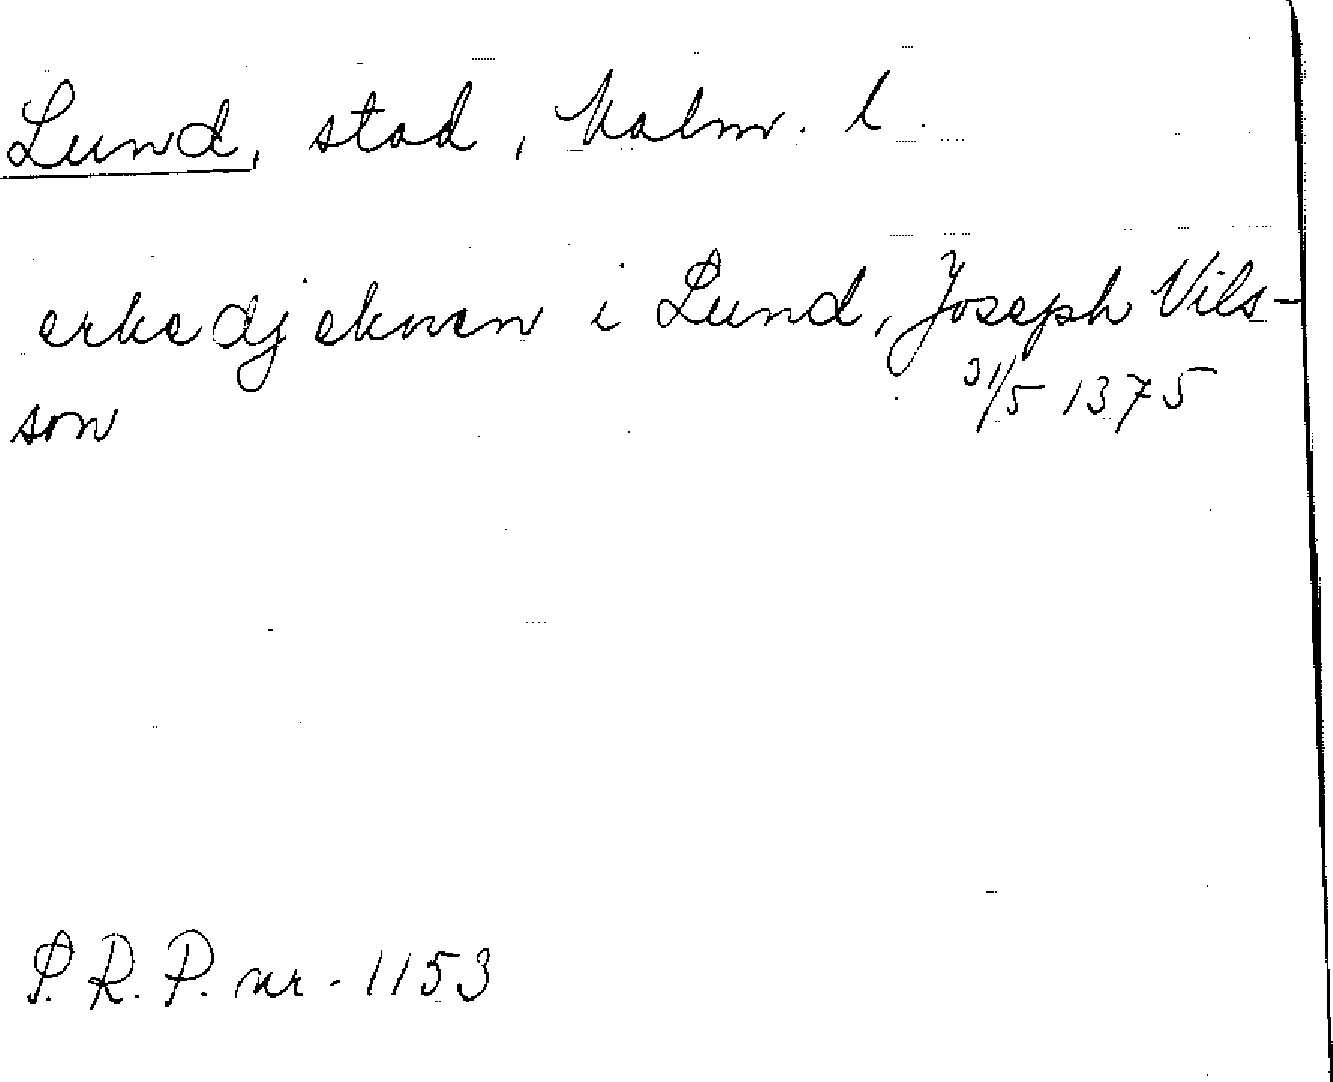 Lund, stad, Malm. l.
erkedjeknen i Lund, Joseph Vils-
son 31/5 1375
P.R.P. nr. 1153